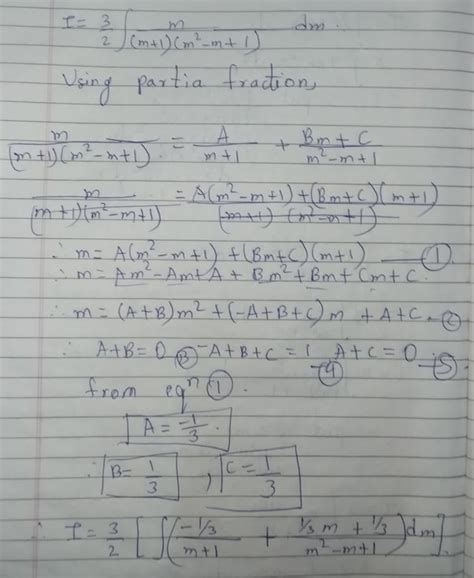 I = 3/2 ∫ m/((m+1)(m²-m+1)) dm.
Using partia fraction,
m/((m+1)(m²-m+1)) = A/(m+1) + (Bm+C)/(m²-m+1)
m/((m+1)(m²-m+1)) = (A(m²-m+1)+(Bm+C)(m+1))/((m+1)(m²-m+1))
∴ m = A(m²-m+1) + (Bm+C)(m+1) — ①
∴ m = Am²-Am+A + Bm²+Bm+Cm+C.
∴ m = (A+B)m² + (-A+B+C)m + A+C -②
∴ A+B=0 ③ -A+B+C=1 -④ A+C=0 -⑤
from eqⁿ ①.
A = -1/3.
∴ B = 1/3, C = 1/3
∴ I = 3/2 [∫((-1/3)/(m+1) + (1/3 m + 1/3)/(m²-m+1)) dm].